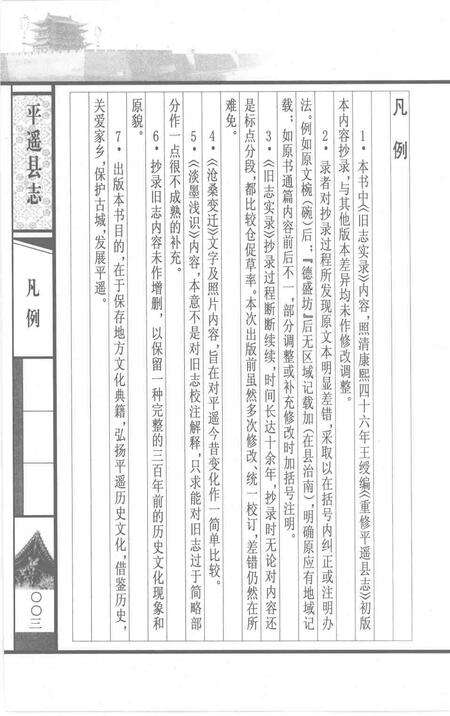 凡例
1·本书中《旧志实录》内容，照清康熙四十六年王绶编《重修平遥县志》初版
本内容抄录，与其他版本差异均未作修改调整。
2·录者对抄录过程所发现原文本明显差错，采取以在括号内纠正或注明办
法。例如原文椀（碗）后；『德盛坊』后无区域记载加（在县治南），明确原应有地域记
载；如原书通篇内容前后不一，部分调整或补充修改时加括号注明。
3·《旧志实录》抄录过程断断续续，时间长达十余年，抄录时无论对内容还
是标点分段，都比较仓促草率。本次出版前虽然多次修改、统一校订，差错仍然在所
难免。
4·《沧桑变迁》文字及照片内容，旨在对平遥今昔变化作一简单比较。
5·《淡墨浅识》内容，本意不是对旧志校注解释，只求能对旧志过于简略部
分作一点很不成熟的补充。
6·抄录旧志内容未作增删，以保留一种完整的三百年前的历史文化现象和
原貌。
7·出版本书目的，在于保存地方文化典籍，弘扬平遥历史文化，借鉴历史，
关爱家乡，保护古城，发展平遥。
平遥县志
凡例
〇〇三